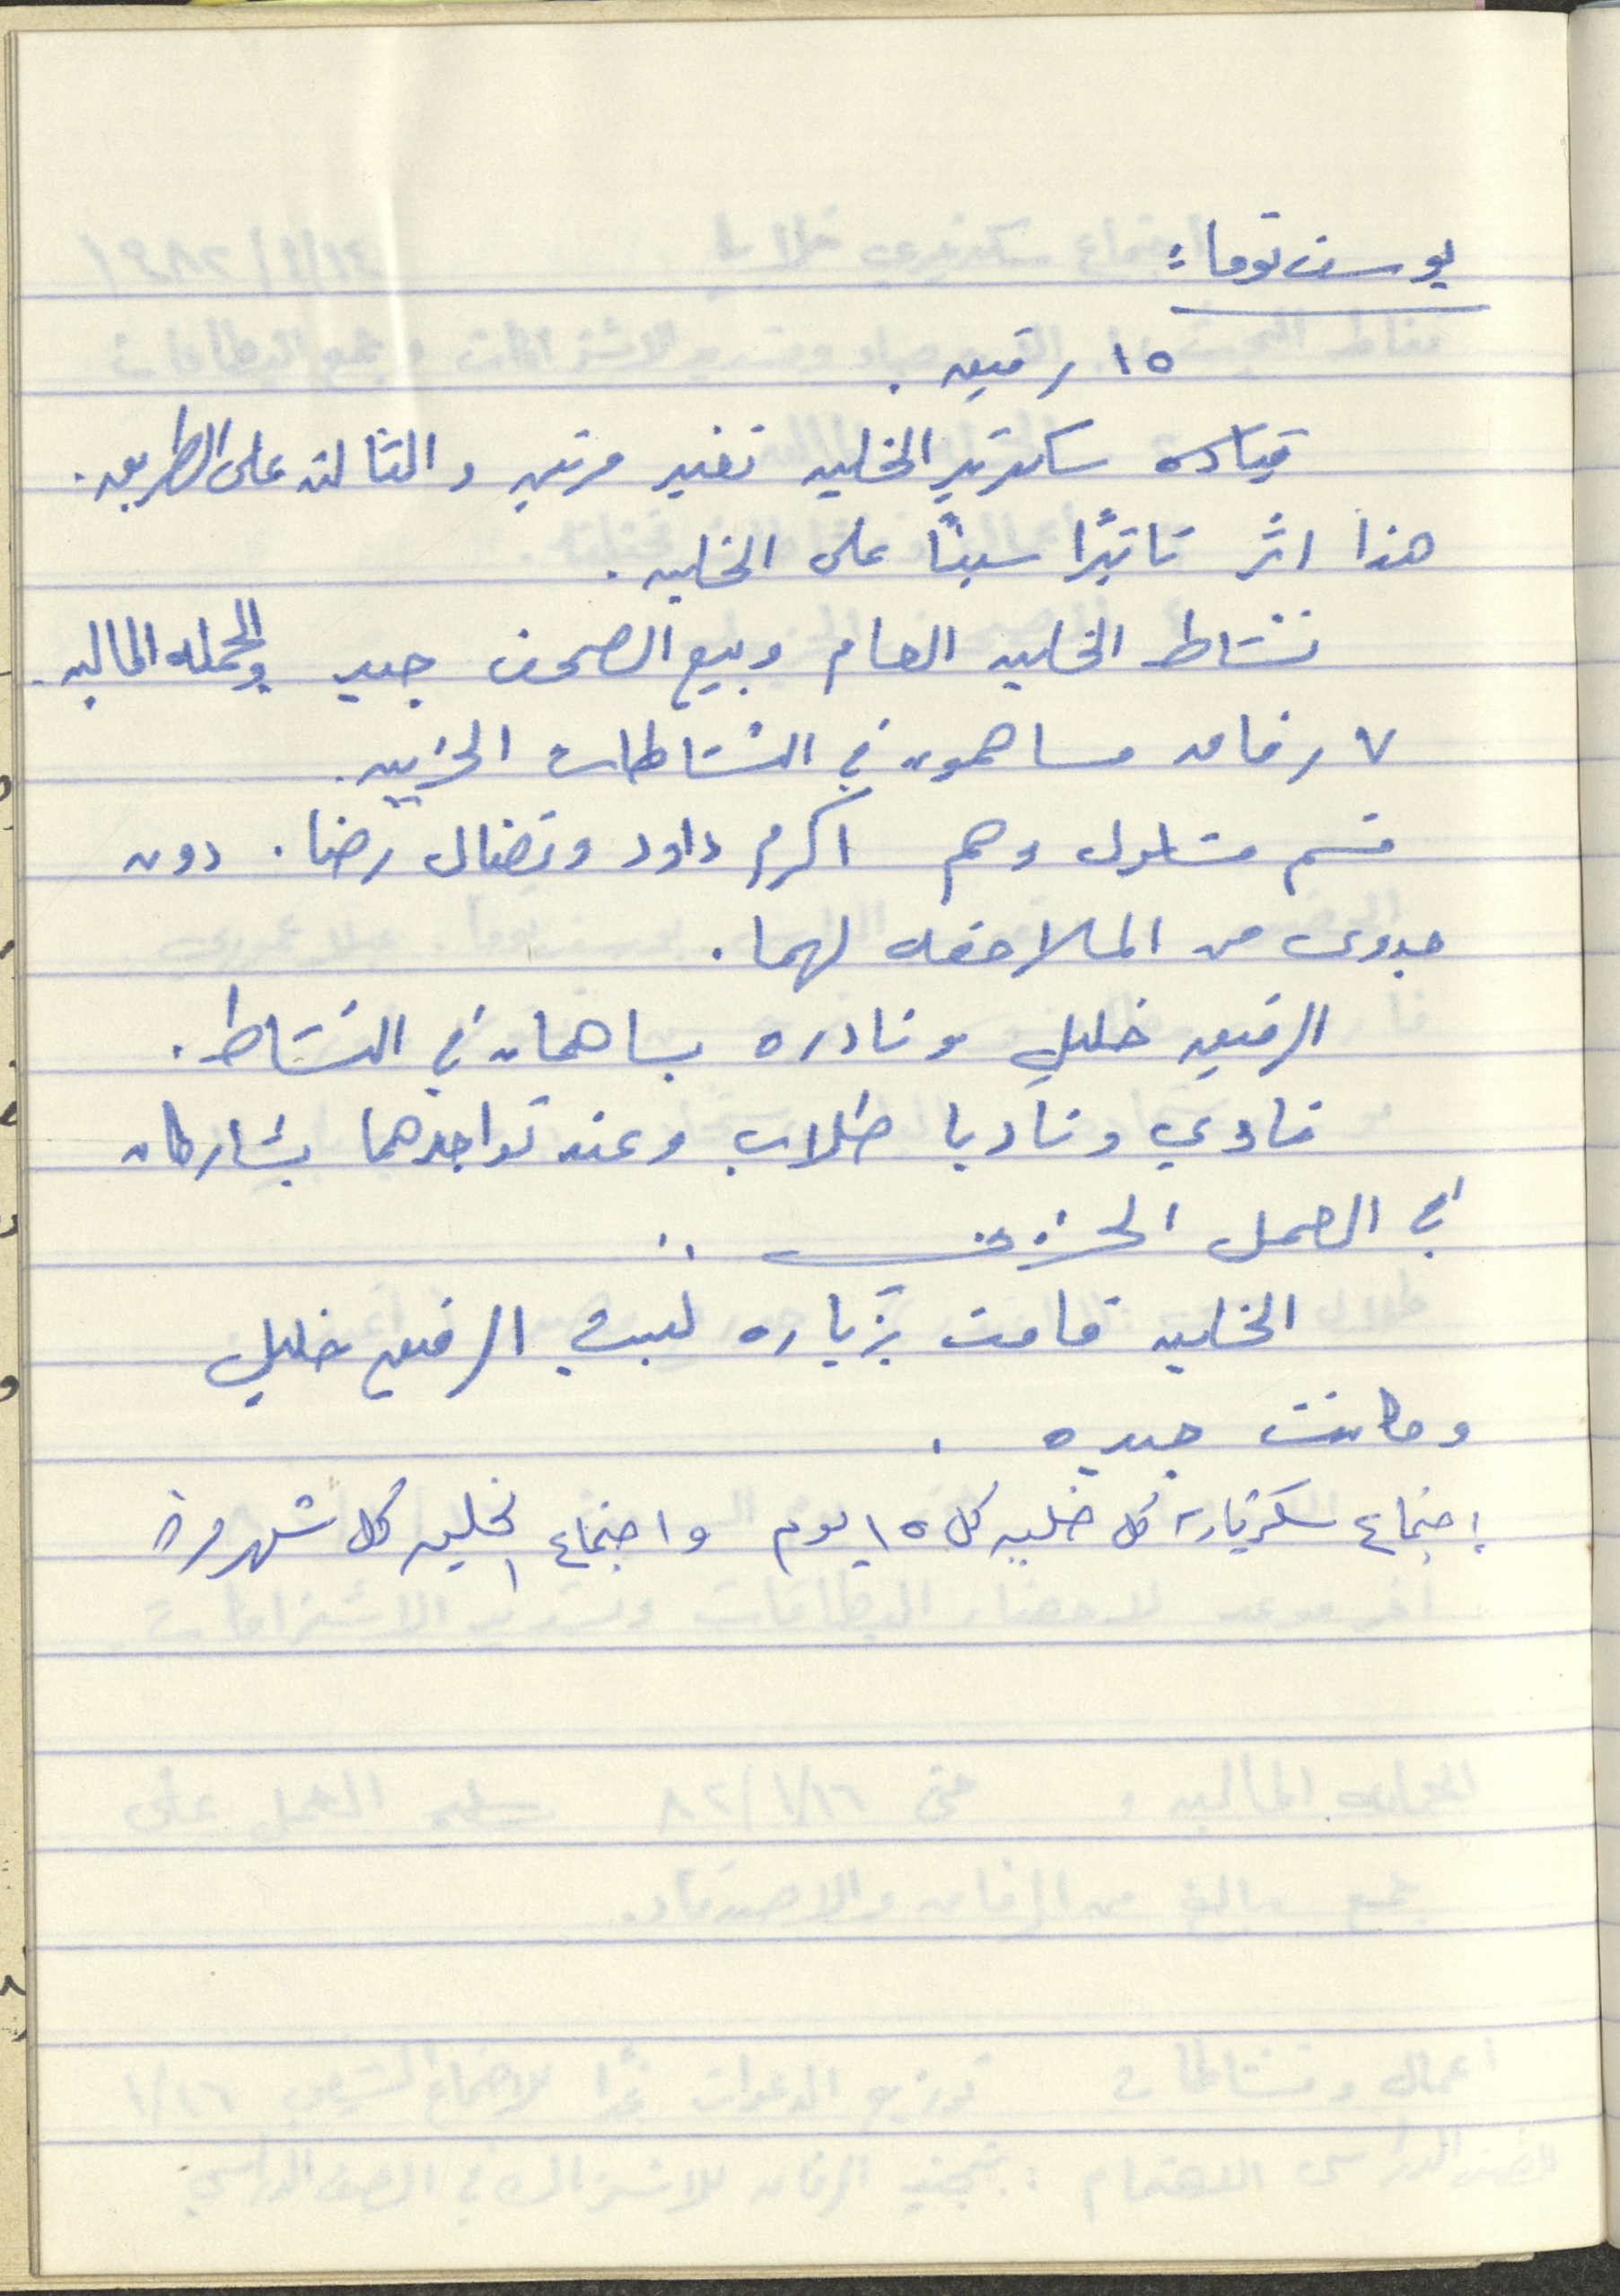 يوسف توما :
١٥ رفيق .
قيادة سكرتير الخليه تغير مرتين والثالثه على الطريق .
هذا اثر تاثيرًا سيئًا على الخليه .
نشاط الخليه العام وبيع الصحف جيد والحمله الماليه .
٧ رفاق مساهمون في النشاطات الحزبيه .
قسم مشلول وهم اكرم داود ونضال رضا . دون
جدوى من الملاحقه لهما .
الرفيق خليل ونادره يساهمان في النشاط .
فادي وناديا طلاب وعند تواجدهما يشاركان
في العمل الحزبي ..
الخليه قامت بزياره لبيت الرفيق خليل
وكانت جيده .
إجتماع سكرتاريه كل خليه كل ١٥ يوم واجتماع الخليه كل شهر مره